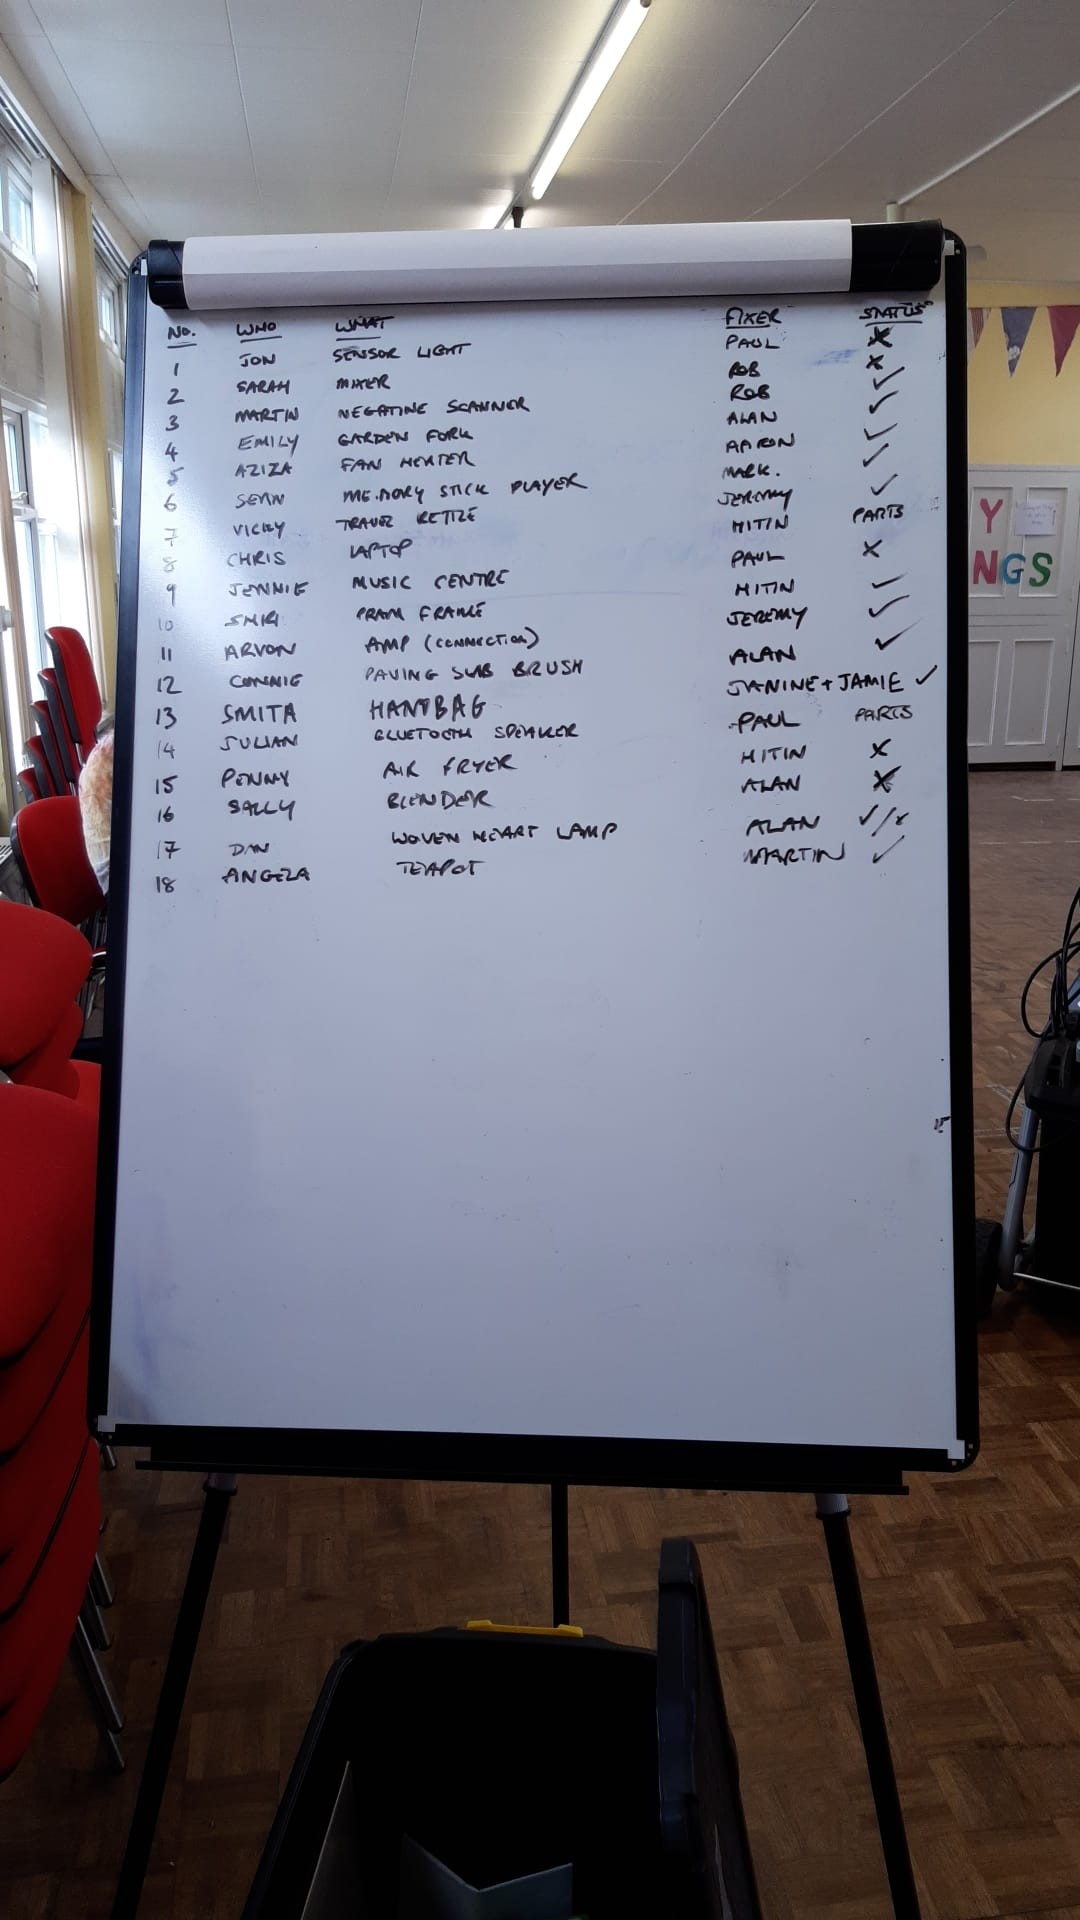 No. WHO WHAT FIXER STATUS
1 JON SENSOR LIGHT PAUL X
2 SARAH MIXER ROB X
3 MARTIN NEGATIVE SCANNER ROB ✓
4 EMILY GARDEN FORK ALAN ✓
5 AZIZA FAN HEATER AARON ✓
6 SEAN MEMORY STICK PLAYER MARK. ✓
7 VICKY TRAVEL KETTLE JEREMY ✓
8 CHRIS LAPTOP HITIN PARTS
9 JENNIE MUSIC CENTRE PAUL X
10 PRAM FRAME HITIN ✓
11 ARVON AMP (CONNECTION) JEREMY ✓
12 CONNIE PAVING SLAB BRUSH ALAN ✓
13 SMITA HANDBAG JANINE + JAMIE ✓
14 JULIAN BLUETOOTH SPEAKER PAUL PARTS
15 PENNY AIR FRYER HITIN X
16 SALLY BLENDER ALAN X
17 DAN WOVEN HEART LAMP ALAN ✓/x
18 ANGELA TEAPOT MARTIN ✓
Y
NGS